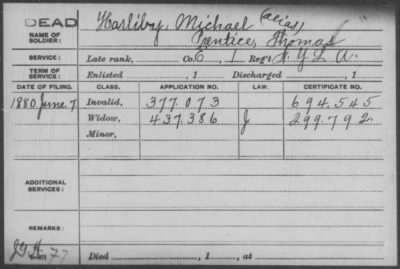 DEAD
NAME OF SOLDIER: Harliby, Michael (alias)
Prentice, Thomas
SERVICE: Late rank, Co. E, 1 Reg't N.Y. L A.
TERM OF SERVICE: Enlisted , 1 Discharged , 1
DATE OF FILING. CLASS. APPLICATION NO. LAW. CERTIFICATE NO.
1880 June 7 Invalid, 377.073 694.545
Widow, 437.386 J 299.792
Minor,
ADDITIONAL SERVICES:
REMARKS:
77 Died , 1 , at